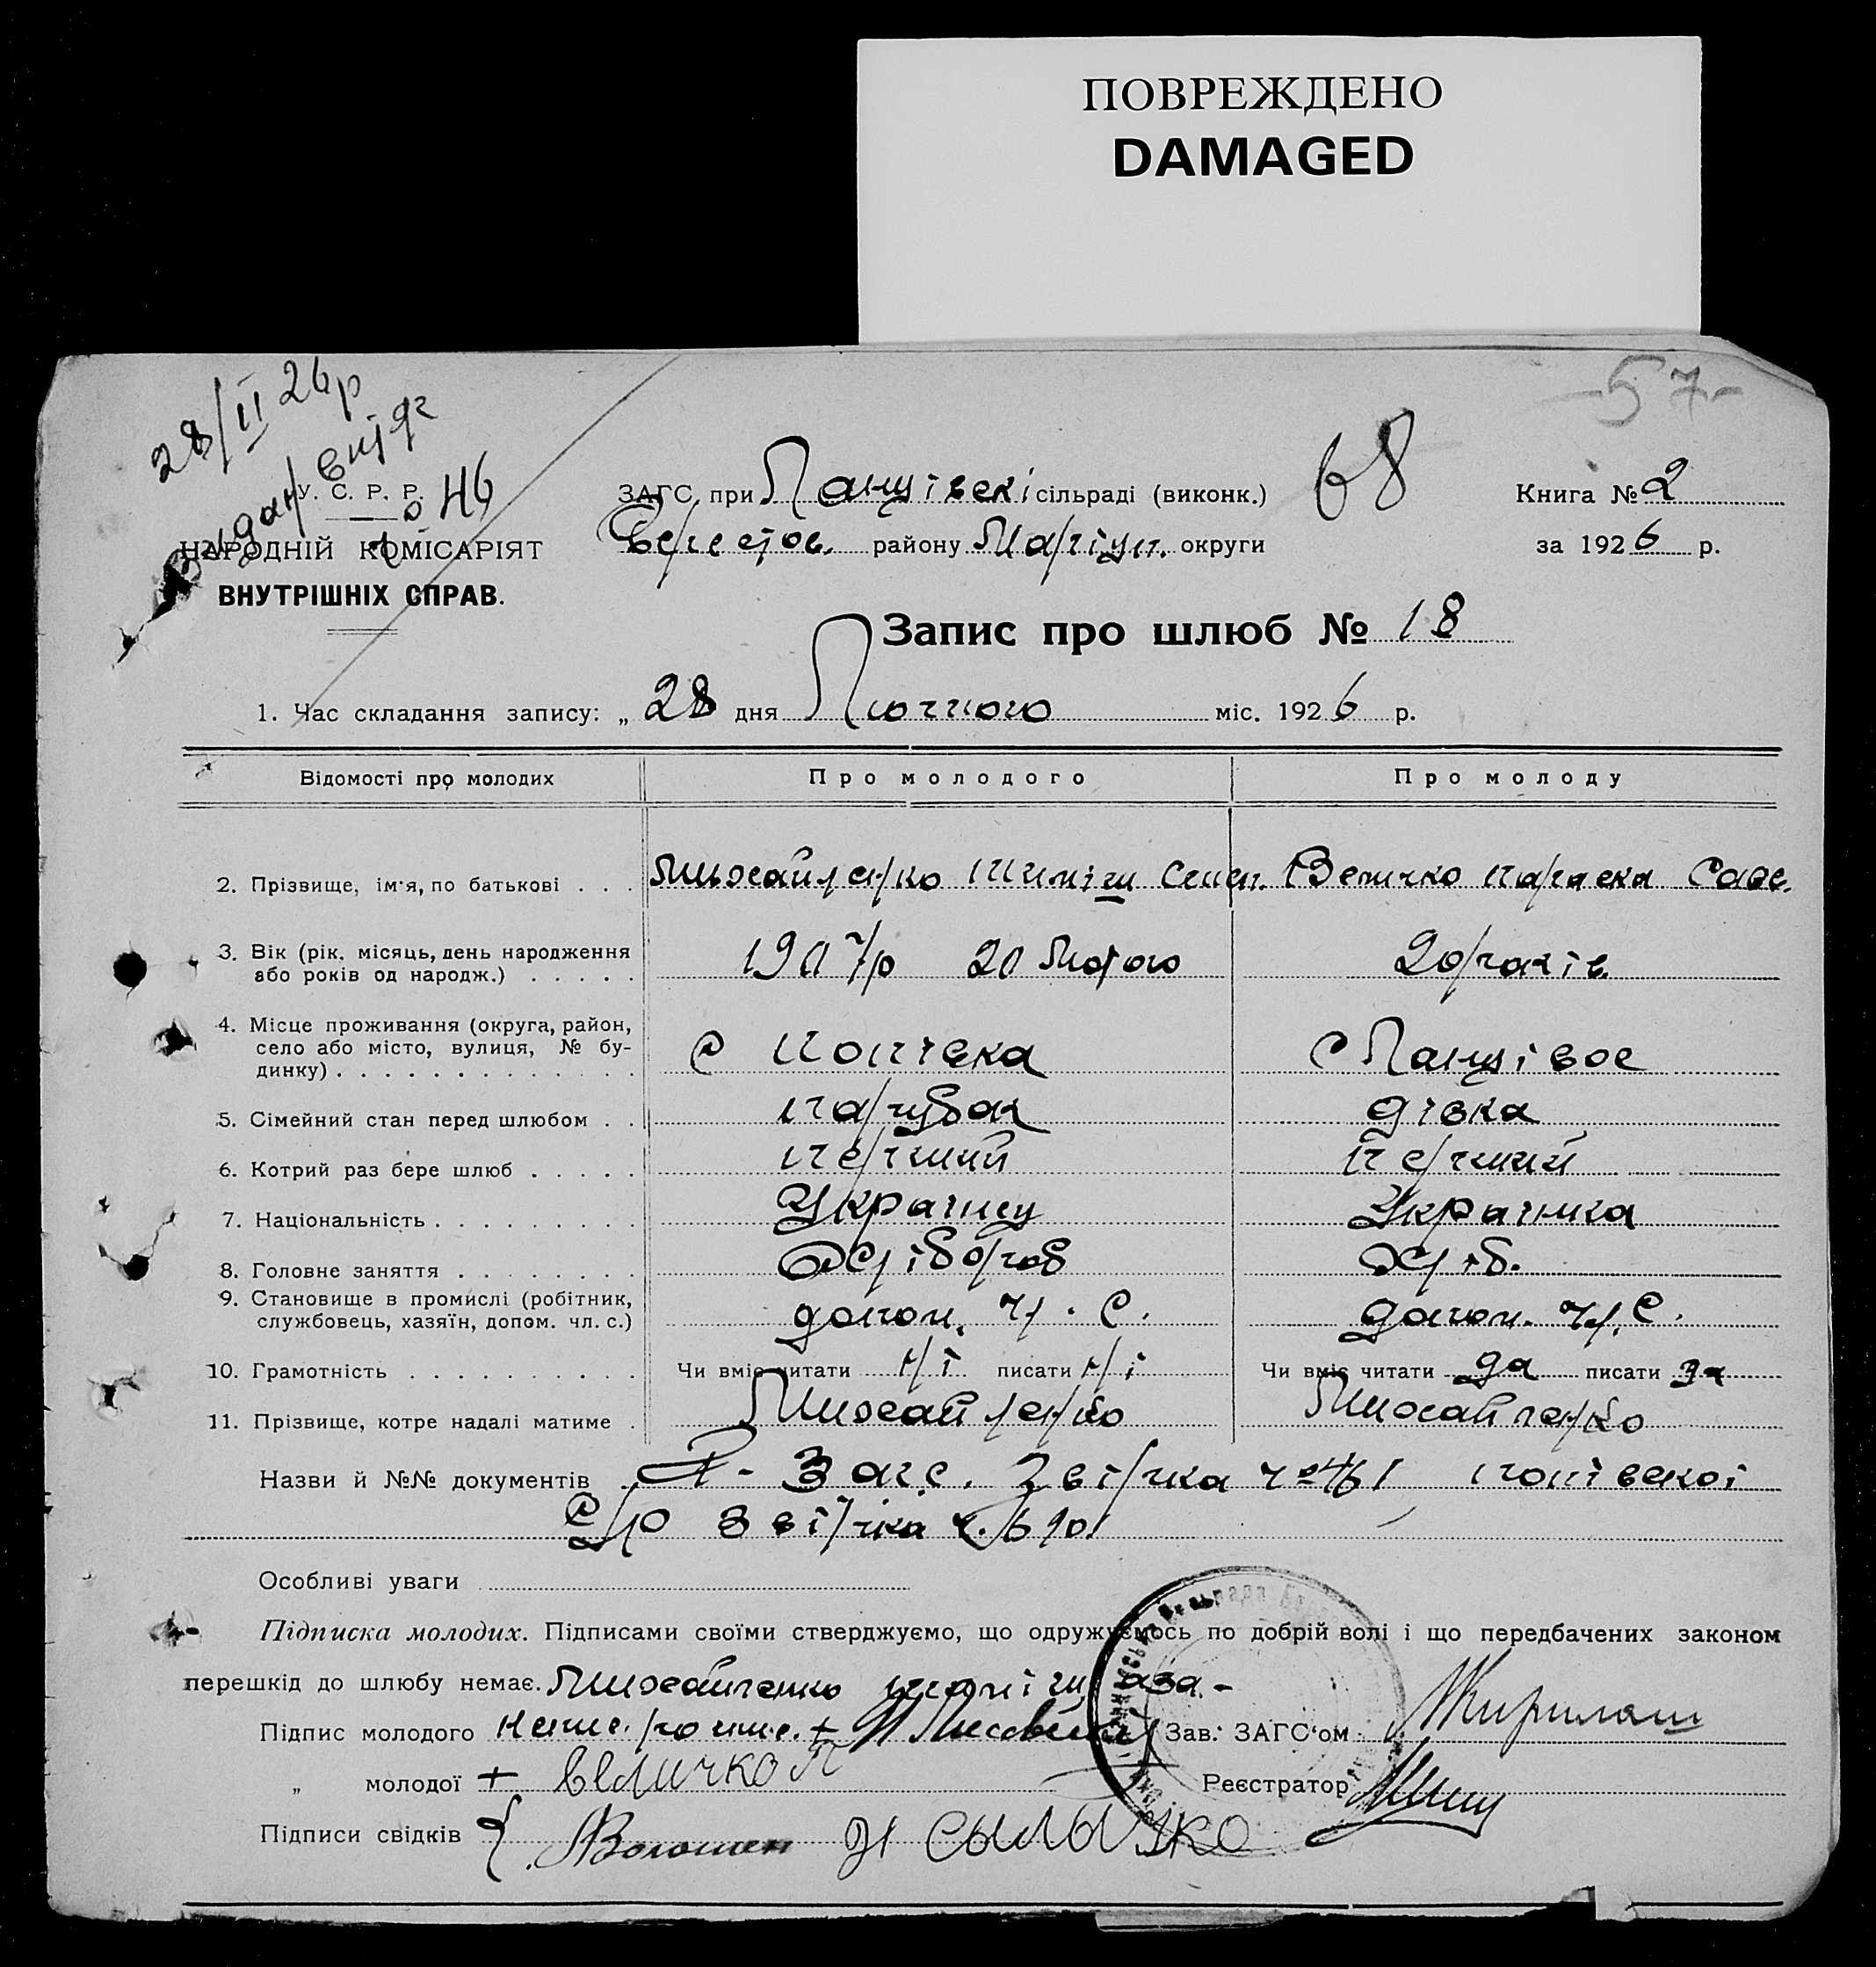 ПОВРЕЖДЕНО
DAMAGED
57-
28/II 26р
Видан витяг
№ 46
У. С. Р. Р.
НАРОДНІЙ КОМІСАРІЯТ
ВНУТРІШНІХ СПРАВ.
ЗАГС при сільраді (виконк.)
68
Книга № 2
Берестов. району Маріуп. округи
за 1926 р.
Запис про шлюб № 18
1. Час складання запису: „ 28 дня Лютого міс. 1926 р.
Відомості про молодих Про молодого Про молоду
2. Прізвище, ім'я, по батькові . . . Михайленко Величко Параска Сав.
3. Вік (рік, місяць, день народження
або років од народж.) . . . . . 1907/р 20 Лютого 20/років
4. Місце проживання (округа, район,
село або місто, вулиця, № бу-
динку) . . . . . . . . . . . . . с Попівка с
5. Сімейний стан перед шлюбом . . парубок дівка
6. Котрий раз бере шлюб . . . . . перший перший
7. Національність . . . . . . . . . Українец Українка
8. Головне заняття . . . . . . . . Хлібороб Хліб.
9. Становище в промислі (робітник,
службовець, хазяїн, допом. чл. с.) допом. чл. с. допом. чл. с.
10. Грамотність . . . . . . . . . . Чи вміє читати ні писати ні Чи вміє читати да писати да
11. Прізвище, котре надалі матиме . Михайленко Михайленко
Назви й №№ документів Загс. Звірка № 461 попівскоі
с/р звірка
Особливі уваги
Підписка молодих. Підписами своїми стверджуємо, що одружуємось по добрій волі і що передбачених законом
перешкід до шлюбу немає. Михайленко
Підпис молодого +
Зав. ЗАГС'ом
„ молодої + величко П
Реєстратор
Підписи свідків